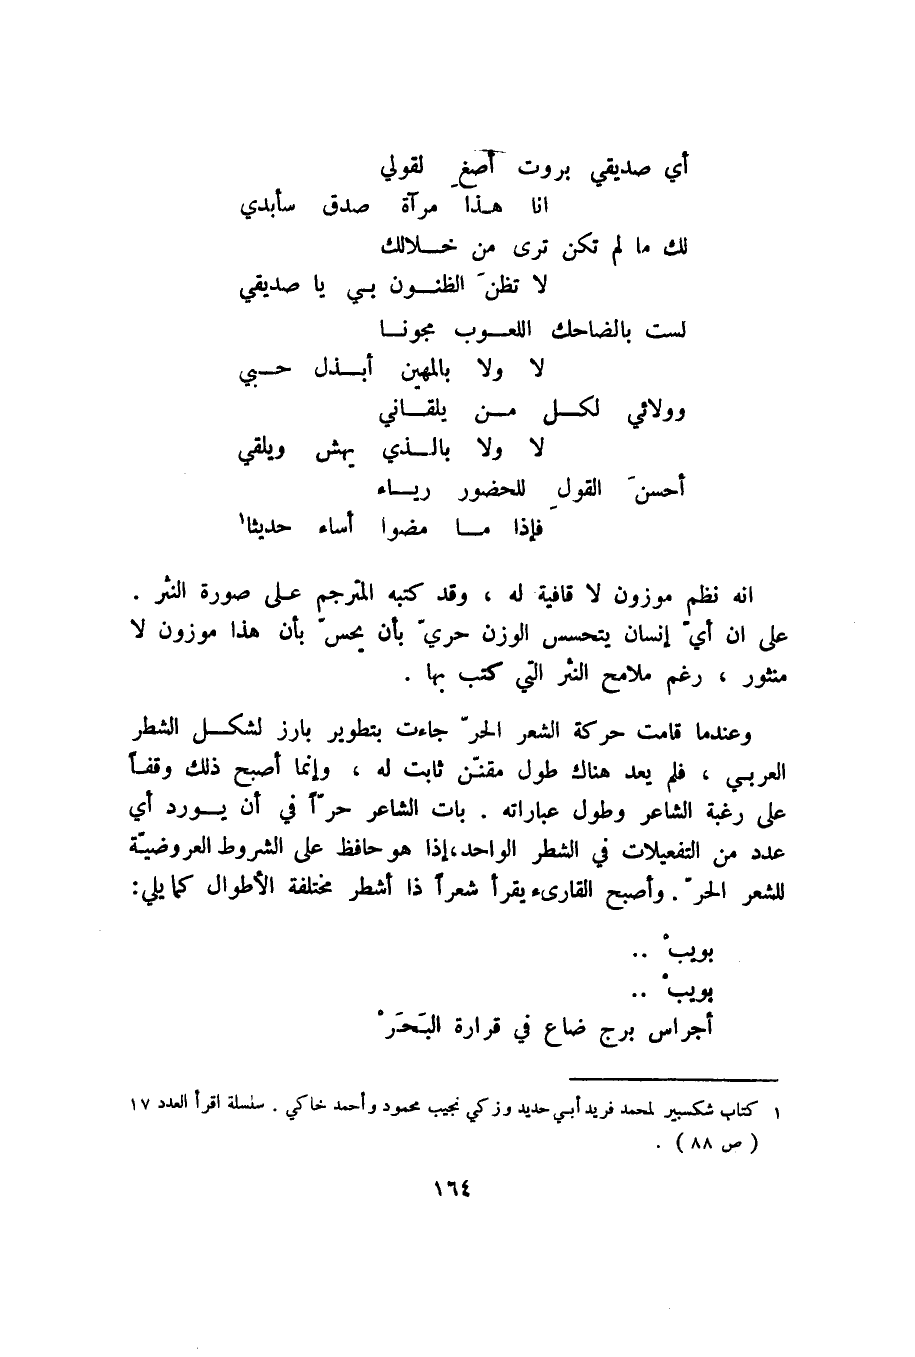 أي صديقي بروت أصغِ لقولي
انا هــذا مرآة صدق سأبدي
لك ما لم تكن ترى من خــلالك
لا تظنَّ الظنــون بــي يا صديقي
لست بالضاحك اللعــوب مجونــا
لا ولا بالمهين أبــذل حــبي
وولائي لكــل مــن يلقــاني
لا ولا بالــذي يهش ويلقي
أحسنَ القولِ للحضور ريــاء
فإذا مــا مضوا أساء حديثا١
انه نظم موزون لا قافية له ، وقد كتبه المترجم على صورة النثر .
على ان أيّ إنسان يتحسس الوزن حريّ بأن يحسّ بأن هذا موزون لا
منثور ، رغم ملامح النثر التي كتب بها .
وعندما قامت حركة الشعر الحرّ جاءت بتطوير بارز لشكــل الشطر
العربي ، فلم يعد هناك طول مقنّن ثابت له ، وإنما أصبح ذلك وقفــاً
على رغبة الشاعر وطول عباراته . بات الشاعر حرّاً في أن يــورد أي
عدد من التفعيلات في الشطر الواحد،إذا هو حافظ على الشروط العروضيّة
للشعر الحرّ . وأصبح القارىء يقرأ شعراً ذا أشطر مختلفة الأطوال كما يلي:
بويبْ ..
بويبْ ..
أجراس برج ضاع في قرارة البَحَرْ
١ كتاب شكسبير لمحمد فريد أبي حديد وزكي نجيب محمود وأحمد خاكي . سلسلة اقرأ العدد ١٧
( ص ٨٨ ) .
١٦٤